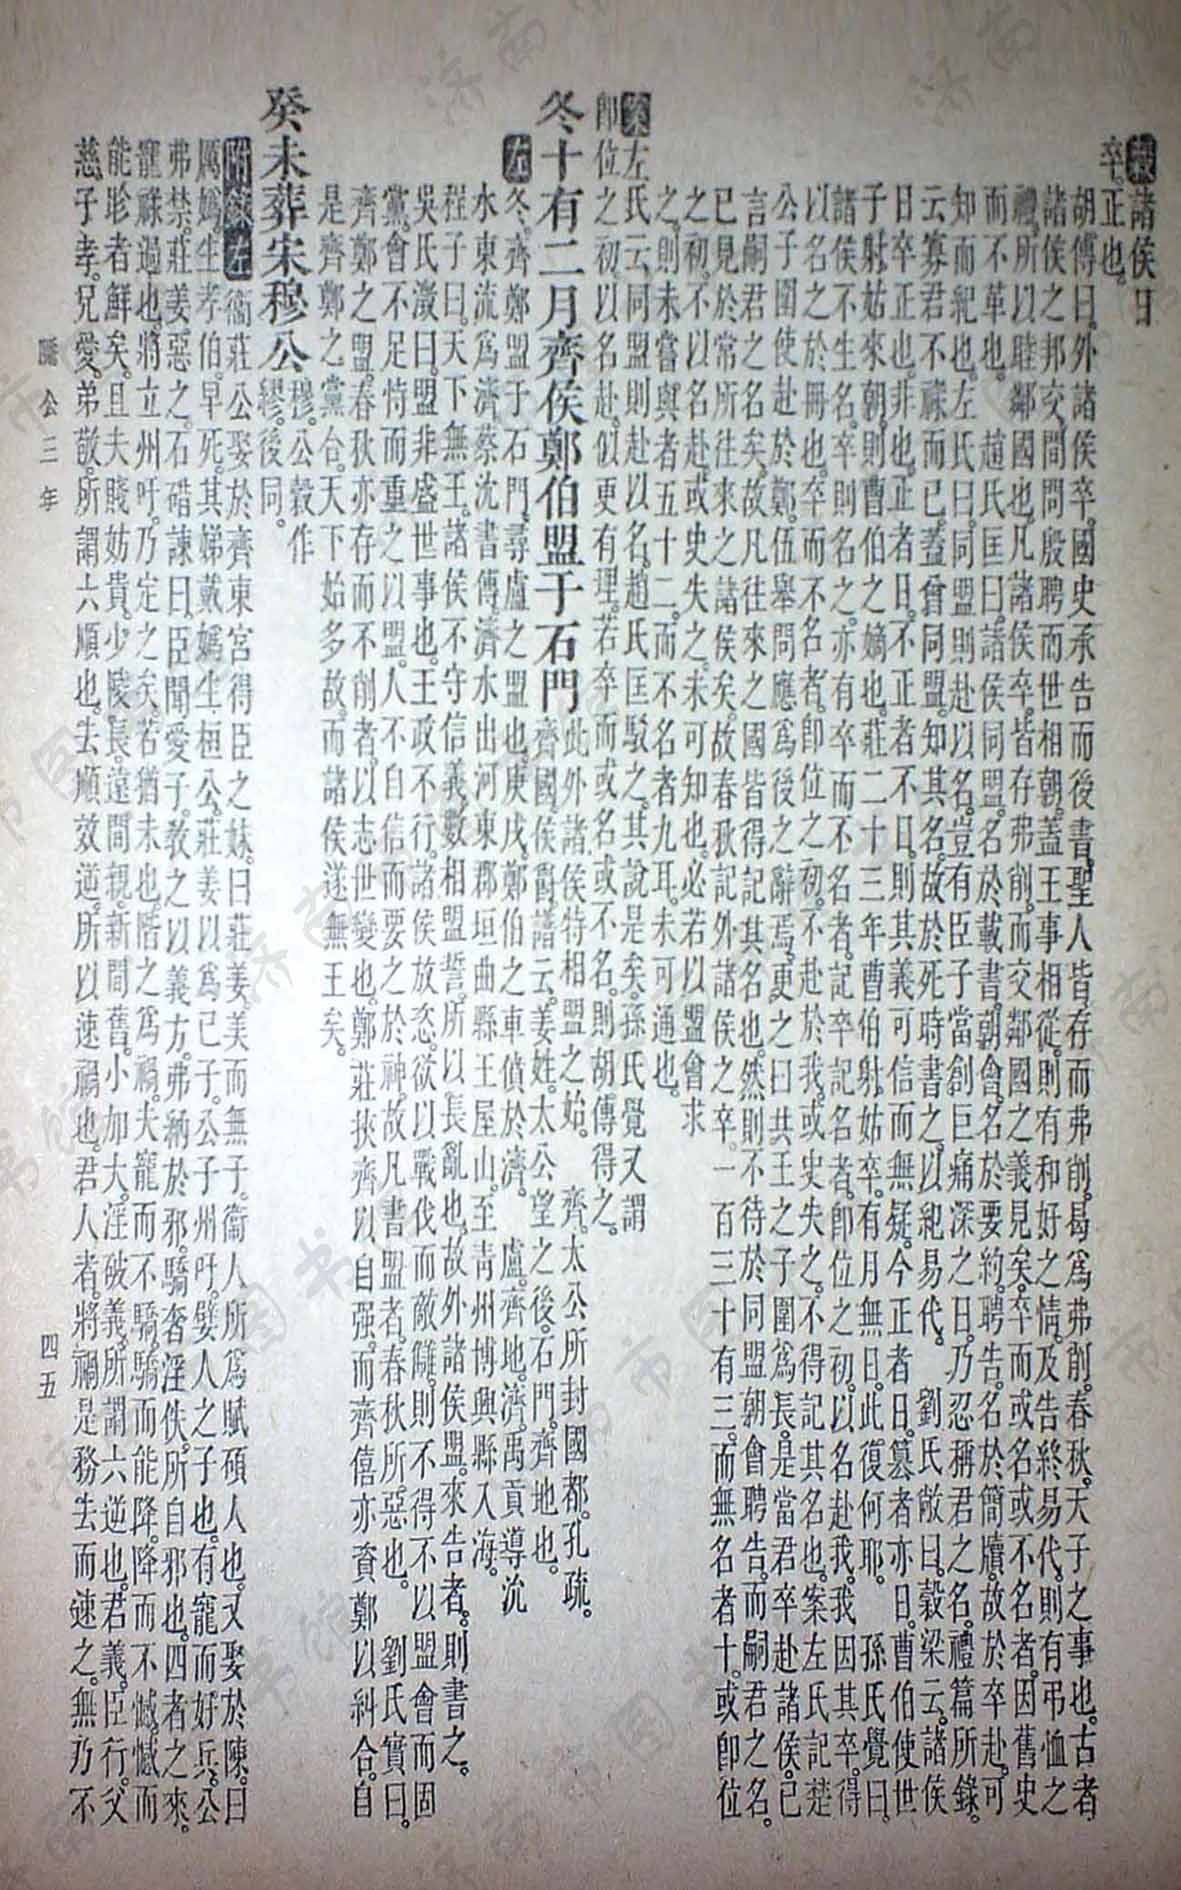 穀諸侯日
卒。正也。
胡傳曰。外諸侯卒。國史承告而後書。聖人皆存而弗削。曷爲弗削。春秋。天子之事也。古者
諸侯之邦交。間問殷聘而世相朝。蓋王事相從。則有和好之情。及告終易代。則有弔恤之
禮。所以睦鄰國也。凡諸侯卒。皆存弗削。而交鄰國之義見矣。卒而或名或不名者。因舊史
而不革也。趙氏匡曰。諸侯同盟。名於載書。朝會。名於要約。聘告。名於簡牘。故於卒赴。可
知而紀也。左氏曰。同盟則赴以名。豈有臣子當創巨痛深之日。乃忍稱君之名。禮篇所錄。
云寡君不祿而已。蓋曾同盟。知其名。故於死時書之。以紀易代。 劉氏敞曰。穀梁云。諸侯
日卒正也。非也。正者日。不正者不日。則其義可信而無疑。今正者日。簒者亦日。曹伯使世
子射姑來朝。則曹伯之嫡也。莊二十三年曹伯射姑卒。有月無日。此復何耶。 孫氏覺曰。
諸侯不生名。卒則名之。亦有卒而不名者。記卒記名者。卽位之初。以名赴我。我因其卒。得
以名之於冊也。卒而不名者。卽位之初。不赴於我。或史失之。不得記其名也。案左氏記楚
公子圍使赴於鄭。伍舉問應爲後之辭焉。更之曰共王之子圍爲長。是當君卒赴諸侯。已
言嗣君之名矣。故凡往來之國皆得記其名也。然則不待於同盟朝會聘告。而嗣君之名。
已見於常所往來之諸侯矣。故春秋記外諸侯之卒。一百三十有三。而無名者十。或卽位
之初。不以名赴。或史失之。未可知也。必若以盟會求
之。則未嘗與者五十二。而不名者九耳。未可通也。
案左氏云。同盟則赴以名。趙氏匡駁之。其說是矣。孫氏覺又謂
卽位之初以名赴。似更有理。若卒而或名或不名。則胡傳得之。
冬十有二月齊侯鄭伯盟于石門此外諸侯特相盟之始。 齊。太公所封國都。孔疏。
齊國侯爵。譜云。姜姓。太公望之後。石門。齊地也。
左冬。齊鄭盟于石門。尋盧之盟也。庚戌。鄭伯之車僨於濟。 盧。齊地。濟。禹貢導沇
水東流爲濟。蔡沈書傳。濟水出河東郡垣曲縣王屋山。至靑州博興縣入海。
程子曰。天下無王。諸侯不守信義。數相盟誓。所以長亂也。故外諸侯盟。來告者。則書之。
吳氏澂曰。盟非盛世事也。王政不行。諸侯放恣。欲以戰伐而敵讎。則不得不以盟會而固
黨。會不足恃而重之以盟。人不自信而要之於神。故凡書盟者。春秋所惡也。 劉氏實曰。
齊鄭之盟。春秋亦存而不削者。以志世變也。鄭莊挾齊以自强。而齊僖亦資鄭以糾合。自
是齊鄭之黨合。天下始多故。而諸侯遂無王矣。
癸未葬宋穆公穆。公穀作
繆。後同。
附錄左衞莊公娶於齊東宮得臣之妹。曰莊姜。美而無子。衞人所爲賦碩人也。又娶於陳。曰
厲嬀。生孝伯。早死。其娣戴嬀生桓公。莊姜以爲己子。公子州吁。嬖人之子也。有寵而好兵。公
弗禁。莊姜惡之。石碏諫曰。臣聞愛子。敎之以義方。弗納於邪。驕奢淫佚。所自邪也。四者之來。
寵祿過也。將立州吁。乃定之矣。若猶未也。階之爲禍。夫寵而不驕。驕而能降。降而不憾。憾而
能眕者。鮮矣。且夫賤妨貴。少陵長。遠間親。新間舊。小加大。淫破義。所謂六逆也。君義。臣行。父
慈。子孝。兄愛。弟敬。所謂六順也。去順效逆。所以速禍也。君人者。將禍是務去而速之。無乃不
隱公三年 四五
濟南市图书馆